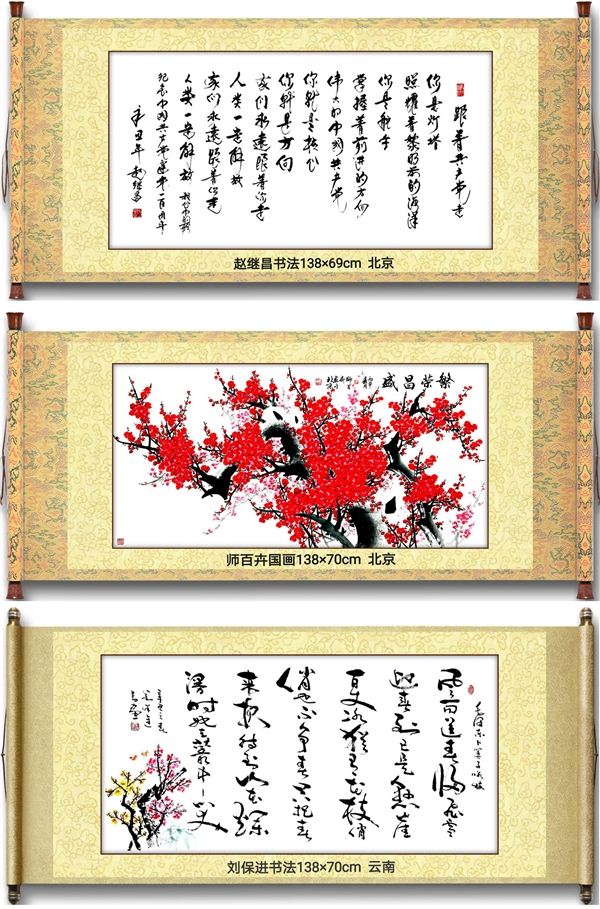 跟着共产党走
你是灯塔
照耀着黎明前的海洋
你是舵手
掌握着前进的方向
伟大的中国共产党
你就是核心
你就是方向
我们永远跟着你走
人类一定解放
我们永远跟着你走
人类一定解放
纪念中国共产党建党一百周年
辛丑年 赵继昌
赵继昌书法138×69cm 北京
繁荣昌盛
师百卉国画138×70cm 北京
毛泽东卜算子咏梅
风雨送春归飞雪
迎春到已是悬崖
百丈冰犹有花枝俏
俏也不争春只把春
来报待到山花烂
漫时她在丛中笑
刘保进书法138×70cm 云南